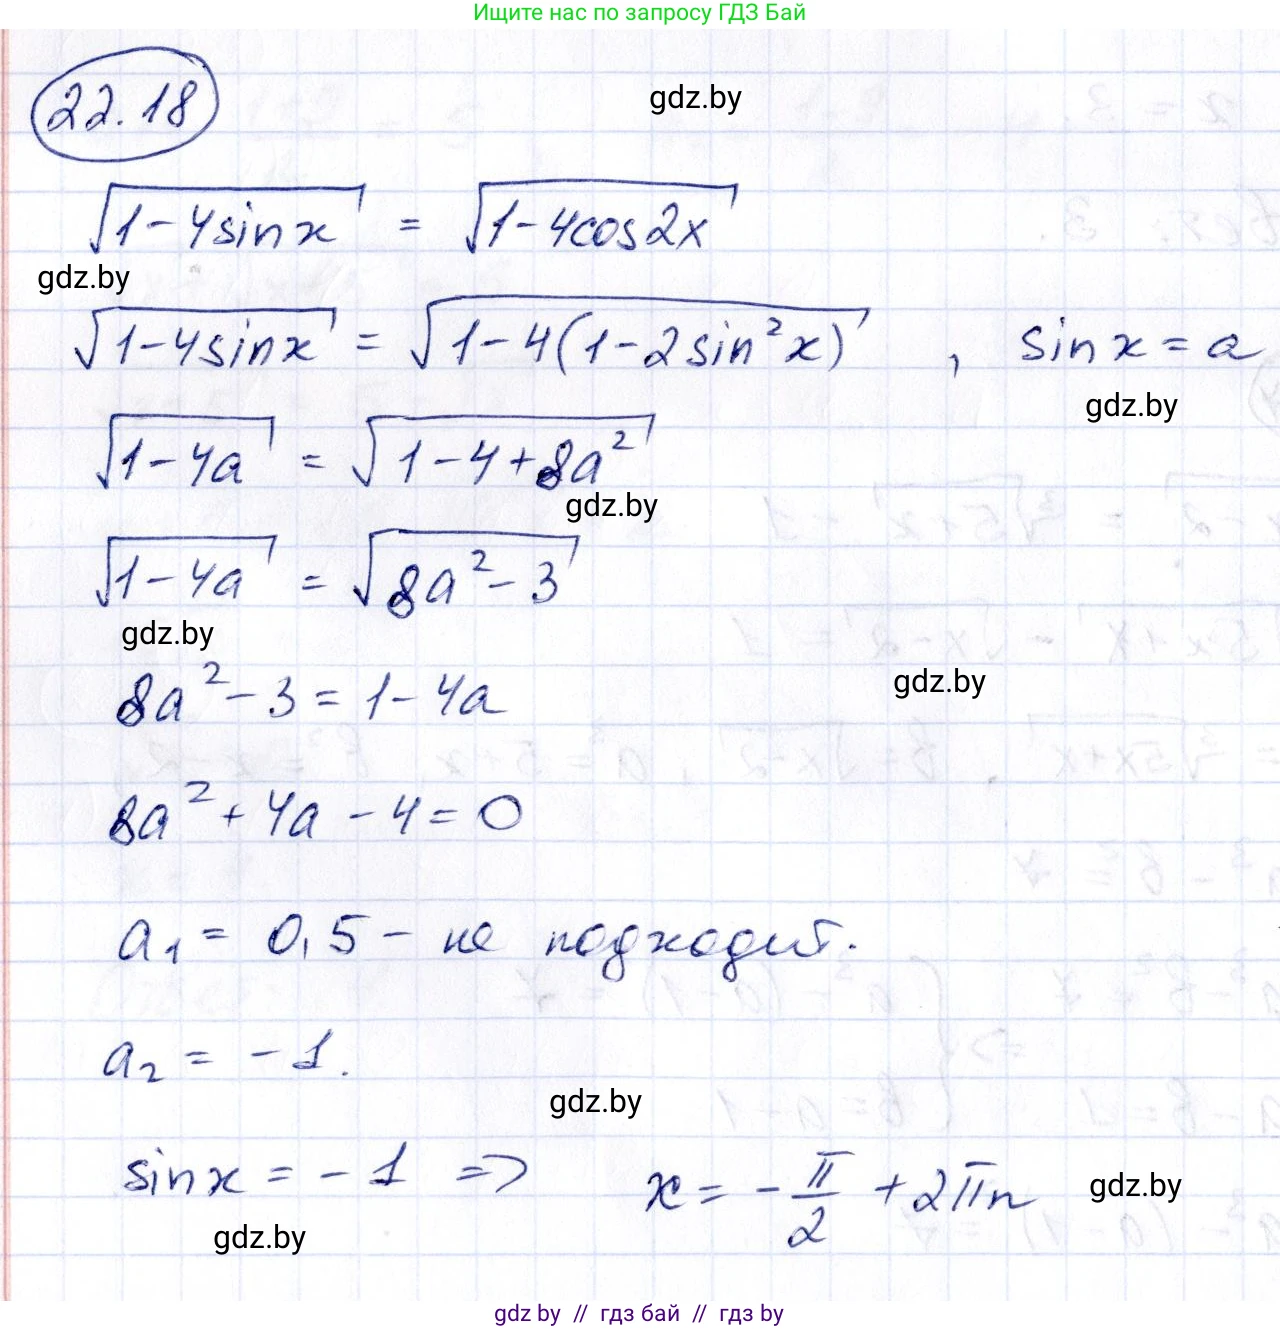 Ищите нас по запросу ГДЗ Бай
22.18
gdz.by
√(1-4sinx) = √(1-4cos2x)
gdz.by
√(1-4sinx) = √(1-4(1-2sin²x)) , sinx = a
gdz.by
√(1-4a) = √(1-4+8a²)
gdz.by
√(1-4a) = √(8a²-3)
gdz.by
8a²-3 = 1-4a
gdz.by
8a²+4a-4=0
a₁ = 0,5 - не подходит.
a₂ = -1.
gdz.by
sinx = -1 => x = -π/2 + 2πn
gdz.by
gdz.by
gdz by // гдз бай // гдз by